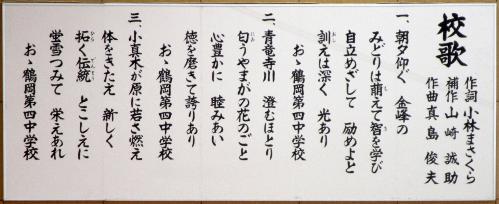 校歌
作詞 小林まさくら
補作 山崎誠助
作曲 真島俊夫
一、朝夕仰ぐ 金峰の
みどりは萌えて智を学び
自立めざして 励めよと
訓えは深く 光あり
おゝ鶴岡第四中学校
二、青竜寺川 澄むほとり
匂うやまがの花のごと
心豊かに 睦みあい
徳を磨きて誇りあり
おゝ鶴岡第四中学校
三、小真木が原に若さ燃え
体をきたえ 新しく
拓く伝統 とこしえに
蛍雪つみて 栄えあれ
おゝ鶴岡第四中学校